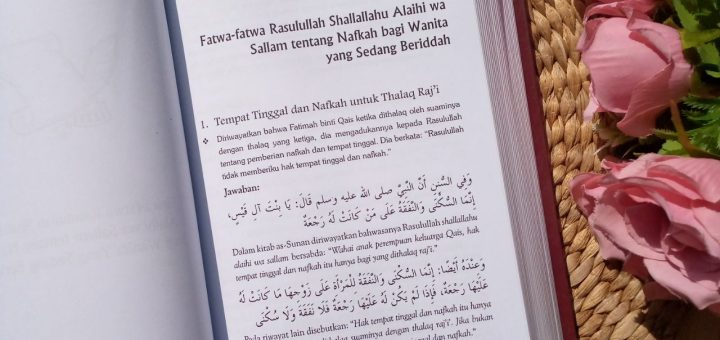 Fatwa-fatwa Rasulullah Shallallahu Alaihi wa
Sallam tentang Nafkah bagi Wanita
yang Sedang Beriddah
1. Tempat Tinggal dan Nafkah untuk Thalaq Raj'i
❖ Diriwayatkan bahwa Fatimah binti Qais ketika dithalaq oleh suaminya
dengan thalaq yang ketiga, dia mengadukannya kepada Rasulullah
tentang pemberian nafkah dan tempat tinggal. Dia berkata: "Rasulullah
tidak memberiku hak tempat tinggal dan nafkah."
Jawaban:
وَفِي السُّنَنِ أَنَّ النَّبِيَّ صلى الله عليه وسلم قَالَ: يَا بِنْتَ آلِ قَيْسٍ،
إِنَّمَا السُّكْنَى وَالنَّفَقَةُ عَلَى مَنْ كَانَتْ لَهُ رَجْعَةٌ
Dalam kitab as-Sunan diriwayatkan bahwasanya Rasulullah shallallahu
alaihi wa sallam bersabda: "Wahai anak perempuan keluarga Qais, hak
tempat tinggal dan nafkah itu hanya bagi yang dithalaq raj'i."
وَعِنْدَهُ أَيْضًا: إِنَّمَا السُّكْنَى وَالنَّفَقَةُ لِلْمَرْأَةِ عَلَى زَوْجِهَا مَا كَانَتْ لَهُ
عَلَيْهَا رَجْعَةٌ، فَإِذَا لَمْ يَكُنْ لَهُ عَلَيْهَا رَجْعَةٌ فَلَا نَفَقَةَ وَلَا سُكْنَى
Pada riwayat lain disebutkan: "Hak tempat tinggal dan nafkah itu hanya
dithalaq suaminya dengan thalaq raj'i. Jika bukan
dan nafkah."